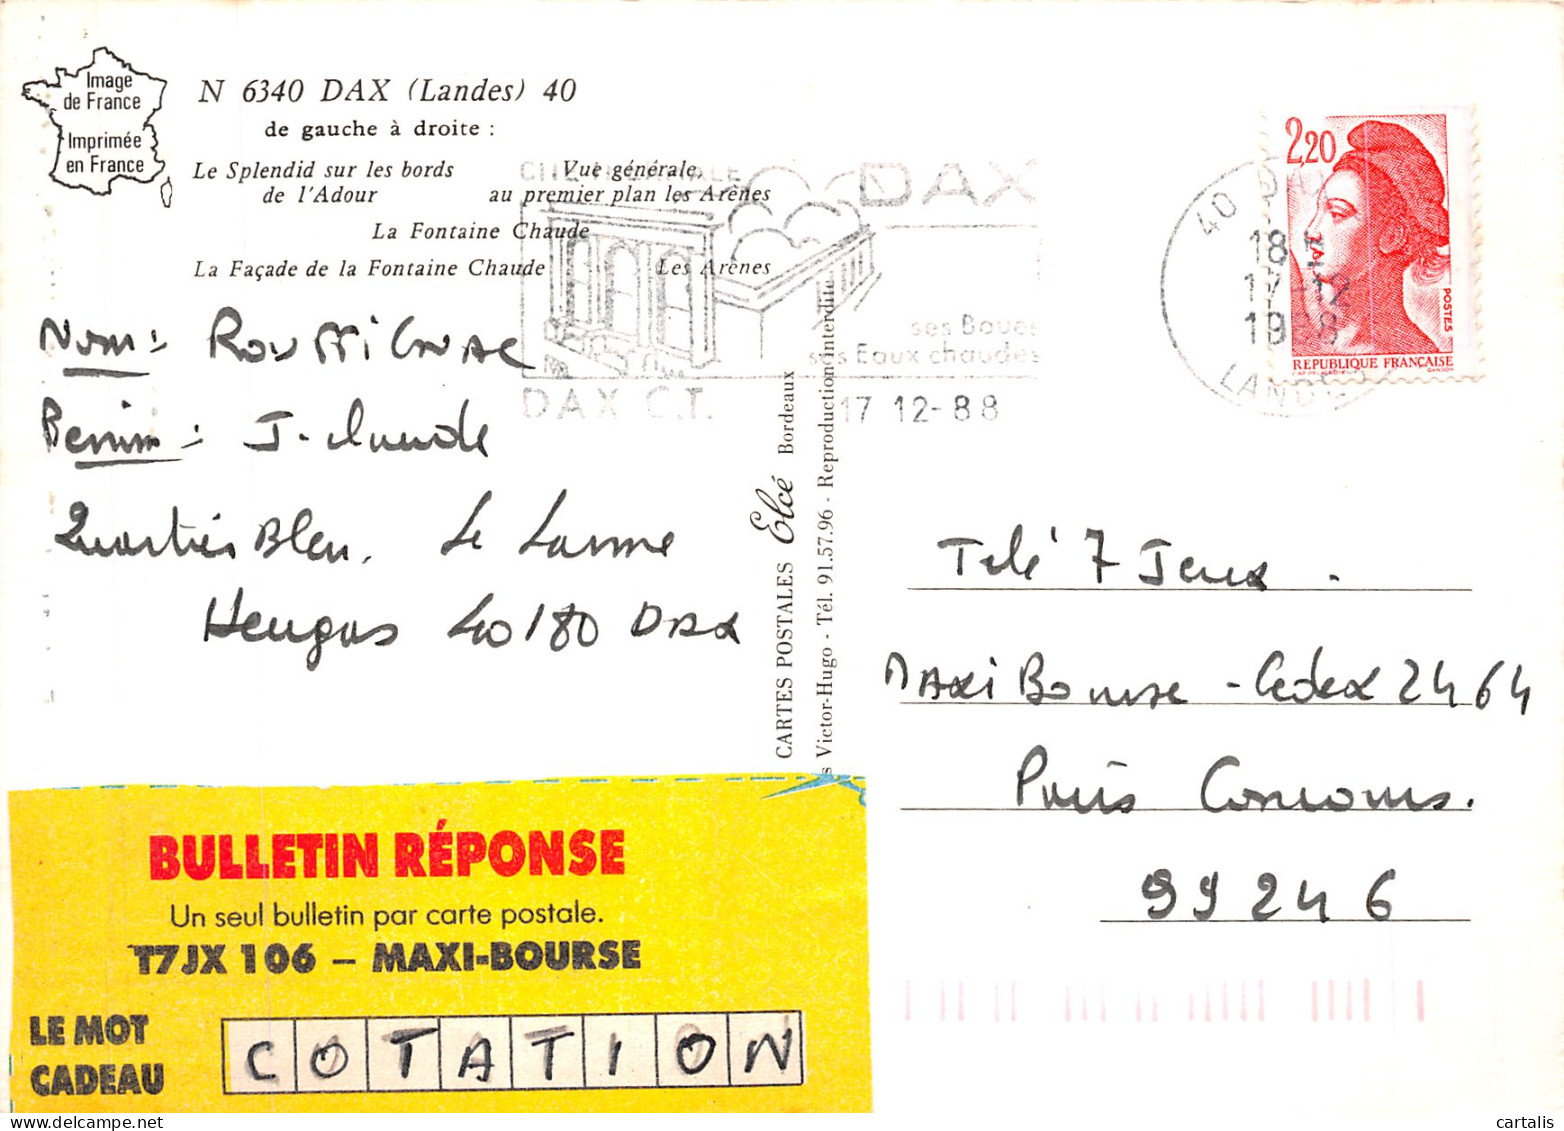 Image
de France
Imprimée
en France
N 6340 DAX (Landes) 40
de gauche à droite :
Le Splendid sur les bords
de l'Adour
Vue générale,
au premier plan les Arènes
La Fontaine Chaude
La Façade de la Fontaine Chaude
Les Arènes
DAX
ses Boues
ses Eaux chaudes
DAX C.T.
17 12-88
CARTES POSTALES Elcé Bordeaux
Victor-Hugo - Tél. 91.57.96 - Reproduction interdite
2,20
POSTES
REPUBLIQUE FRANÇAISE
40
18 H
17-12
19 8
LANDES
Nom : ROUSSIGNAC
J-Claude
Quartier Bleu.
Heugas 40180 DAX
Télé 7 Jeux .
MAXi Bourse - Cedex 2464
Paris Concours.
99246
BULLETIN RÉPONSE
Un seul bulletin par carte postale.
T7JX 106 – MAXI-BOURSE
LE MOT
CADEAU
COTATION
cartalis
© www.delcampe.net